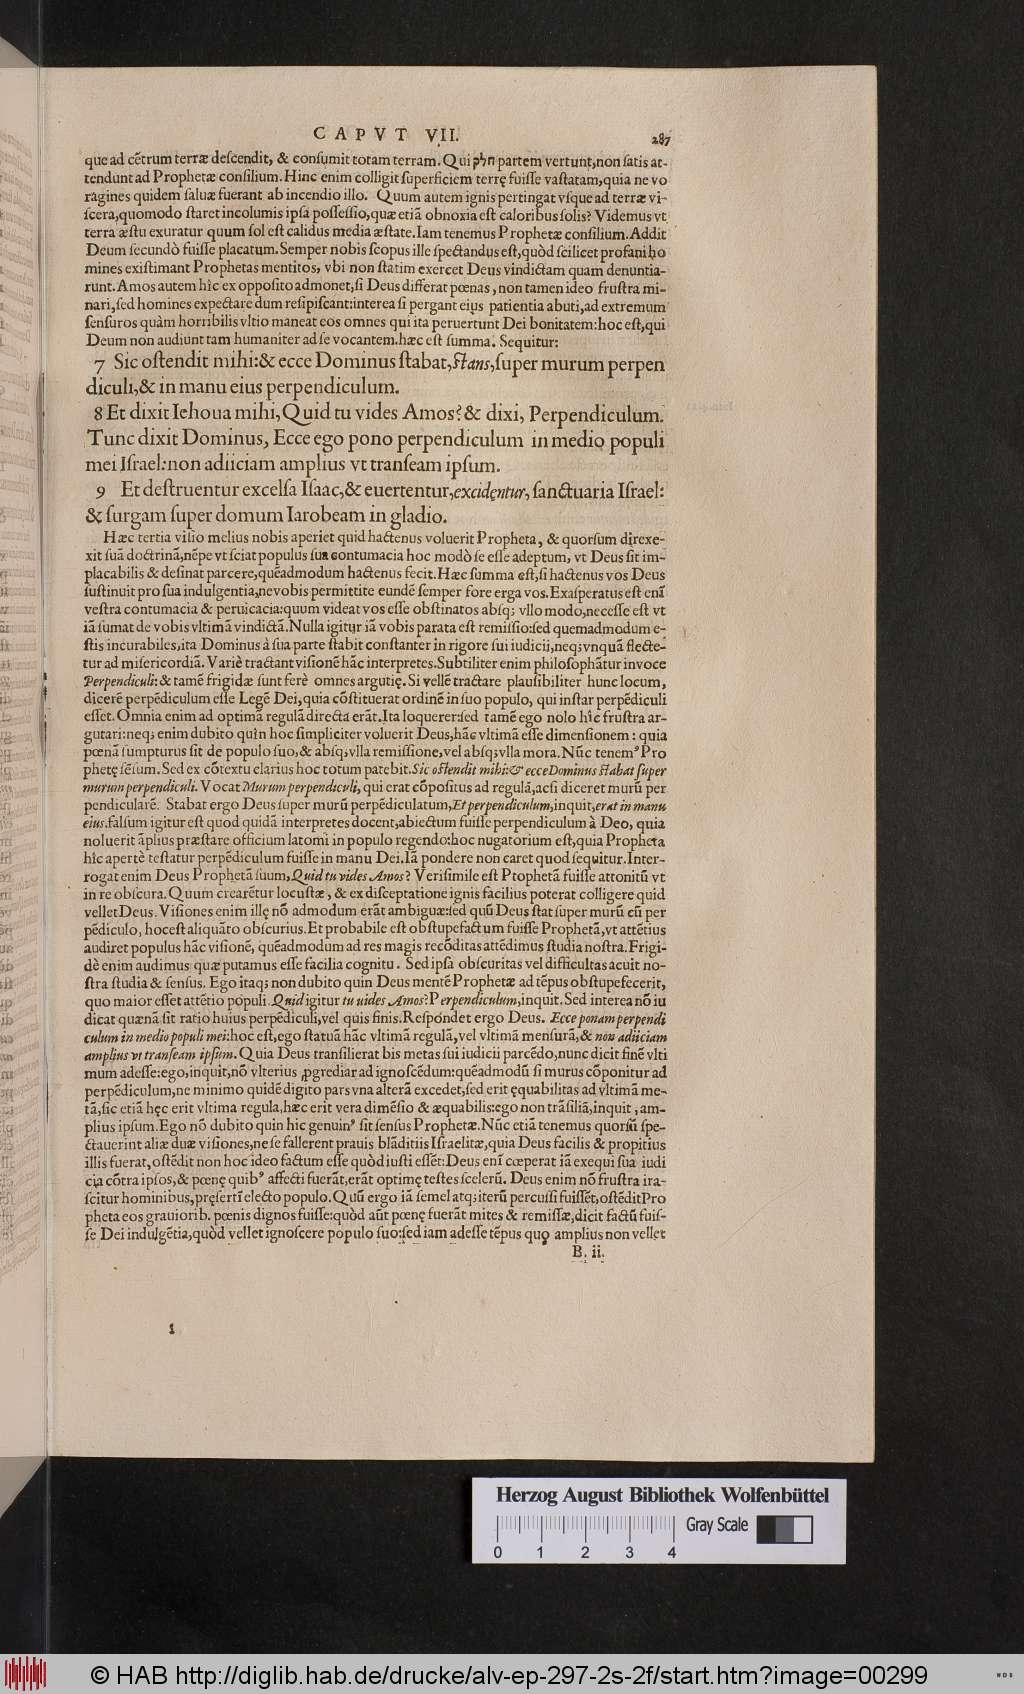 CAPVT VII. 287
que ad cẽtrum terræ deſcendit, & conſumit totam terram. Qui חלק partem vertunt, non ſatis at-
tendunt ad Prophetæ conſilium. Hinc enim colligit ſuperficiem terrę fuiſſe vaſtatam, quia ne vo
ragines quidem ſaluæ fuerant ab incendio illo. Quum autem ignis pertingat vſque ad terræ vi-
ſcera, quomodo ſtaret incolumis ipſa poſſeſſio, quæ etiã obnoxia eſt caloribus ſolis? Videmus vt
terra æſtu exuratur quum ſol eſt calidus media æſtate. Iam tenemus Prophetæ conſilium. Addit
Deum ſecundò fuiſſe placatum. Semper nobis ſcopus ille ſpectandus eſt, quòd ſcilicet profani ho
mines exiſtimant Prophetas mentitos, vbi non ſtatim exercet Deus vindictam quam denuntia-
runt. Amos autem hîc ex oppoſito admonet, ſi Deus differat pœnas, non tamen ideo fruſtra mi-
nari, ſed homines expectare dum reſipiſcant: interea ſi pergant eius patientia abuti, ad extremum
ſenſuros quàm horribilis vltio maneat eos omnes qui ita peruertunt Dei bonitatem: hoc eſt, qui
Deum non audiunt tam humaniter ad ſe vocantem. hæc eſt ſumma. Sequitur:
7 Sic oſtendit mihi: & ecce Dominus ſtabat, ſtans, ſuper murum perpen
diculi, & in manu eius perpendiculum.
8 Et dixit Iehoua mihi, Quid tu vides Amos? & dixi, Perpendiculum.
Tunc dixit Dominus, Ecce ego pono perpendiculum in medio populi
mei Iſrael: non adiiciam amplius vt tranſeam ipſum.
9 Et deſtruentur excelſa Iſaac, & euertentur, excidẹntur, ſanctuaria Iſrael:
& ſurgam ſuper domum Iarobeam in gladio.
Hæc tertia viſio melius nobis aperiet quid hactenus voluerit Propheta, & quorſum direxe-
xit ſuã doctrinã, nẽpe vt ſciat populus ſua contumacia hoc modò ſe eſſe adeptum, vt Deus ſit im-
placabilis & deſinat parcere, quẽadmodum hactenus fecit. Hæc ſumma eſt, ſi hactenus vos Deus
ſuſtinuit pro ſua indulgentia, ne vobis permittite eundẽ ſemper fore erga vos. Exaſperatus eſt enĩ
veſtra contumacia & peruicacia: quum videat vos eſſe obſtinatos abſq; vllo modo, neceſſe eſt vt
iã ſumat de vobis vltimã vindictã. Nulla igitur iã vobis parata eſt remiſſio: ſed quemadmodum e-
ſtis incurabiles, ita Dominus à ſua parte ſtabit conſtanter in rigore ſui iudicii, neq; vnquã flecte-
tur ad miſericordiã. Variè tractant viſionẽ hãc interpretes. Subtiliter enim philoſophãtur in voce
Perpendiculi: & tamẽ frigidæ ſunt ferè omnes argutię. Si vellẽ tractare plauſibiliter hunc locum,
dicerẽ perpẽdiculum eſſe Legẽ Dei, quia cõſtituerat ordinẽ in ſuo populo, qui inſtar perpẽdiculi
eſſet. Omnia enim ad optimã regulã directa erãt. Ita loquerer: ſed tamẽ ego nolo hîc fruſtra ar-
gutari: neq; enim dubito quin hoc ſimpliciter voluerit Deus, hãc vltimã eſſe dimenſionem: quia
pœnã ſumpturus ſit de populo ſuo, & abſq; vlla remiſſione, vel abſq; vlla mora. Nũc tenemꝰ Pro
phetę ſẽſum. Sed ex cõtextu clarius hoc totum patebit. Sic oſtendit mihi: & ecce Dominus ſtabat ſuper
murum perpendiculi. Vocat Murum perpendiculi, qui erat cõpoſitus ad regulã, acſi diceret murũ per
pendicularẽ. Stabat ergo Deus ſuper murũ perpẽdiculatum, Et perpendiculum, inquit, erat in manu
eius. falſum igitur eſt quod quidã interpretes docent, abiectum fuiſſe perpendiculum à Deo, quia
noluerit ãplius præſtare officium latomi in populo regendo: hoc nugatorium eſt, quia Propheta
hîc apertè teſtatur perpẽdiculum fuiſſe in manu Dei. Iã pondere non caret quod ſequitur. Inter-
rogat enim Deus Prophetã ſuum, Quid tu vides Amos? Veriſimile eſt Prophetã fuiſſe attonitũ vt
in re obſcura. Quum crearẽtur locuſtæ, & ex diſceptatione ignis facilius poterat colligere quid
vellet Deus. Viſiones enim illę nõ admodum erãt ambiguæ: ſed quũ Deus ſtat ſuper murũ cũ per
pẽdiculo, hoc eſt aliquãto obſcurius. Et probabile eſt obſtupefactum fuiſſe Prophetã, vt attẽtius
audiret populus hãc viſionẽ, quẽadmodum ad res magis recõditas attẽdimus ſtudia noſtra. Frigi-
dè enim audimus quæ putamus eſſe facilia cognitu. Sed ipſa obſcuritas vel difficultas acuit no-
ſtra ſtudia & ſenſus. Ego itaq; non dubito quin Deus mentẽ Prophetæ ad tẽpus obſtupefecerit,
quo maior eſſet attẽtio populi. Quid igitur tu uides Amos? Perpendiculum, inquit. Sed interea nõ iu
dicat quænã ſit ratio huius perpẽdiculi, vel quis finis. Reſpondet ergo Deus. Ecce ponam perpendi
culum in medio populi mei: hoc eſt, ego ſtatuã hãc vltimã regulã, vel vltimã menſurã, & non adiiciam
amplius vt tranſeam ipſum. Quia Deus tranſilierat bis metas ſui iudicii parcẽdo, nunc dicit finẽ vlti
mum adeſſe: ego, inquit, nõ vlterius ꝓgrediar ad ignoſcẽdum: quẽadmodũ ſi murus cõponitur ad
perpẽdiculum, ne minimo quidẽ digito pars vna alterã excedet, ſed erit ęquabilitas ad vltimã me-
tã, ſic etiã hęc erit vltima regula, hæc erit vera dimẽſio & æquabilis: ego non trãſiliã, inquit, am-
plius ipſum. Ego nõ dubito quin hic genuinꝰ ſit ſenſus Prophetæ. Nũc etiã tenemus quorſũ ſpe-
ctauerint aliæ duæ viſiones, ne ſe fallerent prauis blãditiis Iſraelitæ, quia Deus facilis & propitius
illis fuerat, oſtẽdit non hoc ideo factum eſſe quòd iuſti eſſẽt: Deus enĩ cœperat iã exequi ſua iudi
cia cõtra ipſos, & pœnę quibꝰ affecti fuerãt, erãt optimę teſtes ſcelerũ. Deus enim nõ fruſtra ira-
ſcitur hominibus, pręſertĩ electo populo. Quũ ergo iã ſemel atq; iterũ percuſſi fuiſſẽt, oſtẽdit Pro
pheta eos grauiorib. pœnis dignos fuiſſe: quòd aũt pœnę fuerãt mites & remiſſæ, dicit factũ fuiſ-
ſe Dei indulgẽtia, quòd vellet ignoſcere populo ſuo: ſed iam adeſſe tẽpus quo amplius non vellet
B. ii.
Herzog August Bibliothek Wolfenbüttel
Gray Scale
0 1 2 3 4
© HAB http://diglib.hab.de/drucke/alv-ep-297-2s-2f/start.htm?image=00299